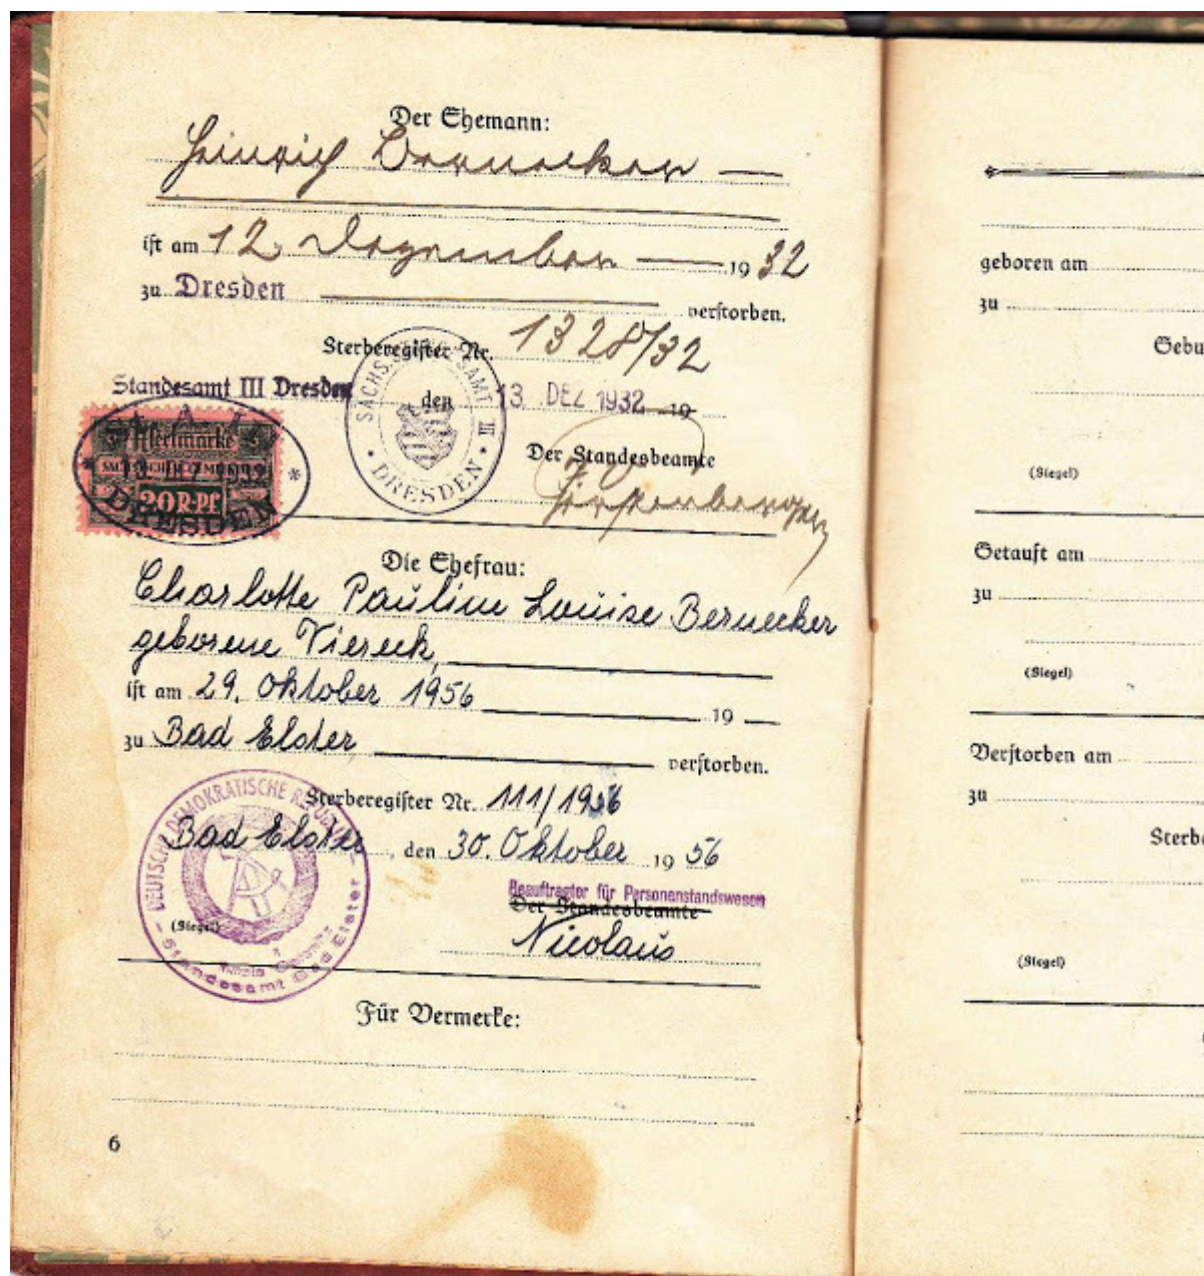 Der Ehemann:
Heinrich Bernecker
ist am 12. Dezember 19 32
zu Dresden verstorben.
Sterberegister Nr. 1328/32
Standesamt III Dresden
den 13. DEZ 1932 19
SÄCHS. STANDESAMT III
DRESDEN
Der Standesbeamte
13. DEZ 1932
20 R-Pf
DRESDEN
Die Ehefrau:
Charlotte Pauline Louise Bernecker
geborene Viereck,
ist am 29. Oktober 1956 19
zu Bad Elster, verstorben.
Sterberegister Nr. 111/1956
Bad Elster, den 30. Oktober 19 56
DEUTSCHE DEMOKRATISCHE REPUBLIK
Standesamt Bad Elster
Beauftragter für Personenstandswesen
Der Standesbeamte
(Siegel)
Nicolaus
Für Vermerke:
6
geboren am
zu
Gebu
(Siegel)
Getauft am
zu
(Siegel)
Verstorben am
zu
Sterbe
(Siegel)